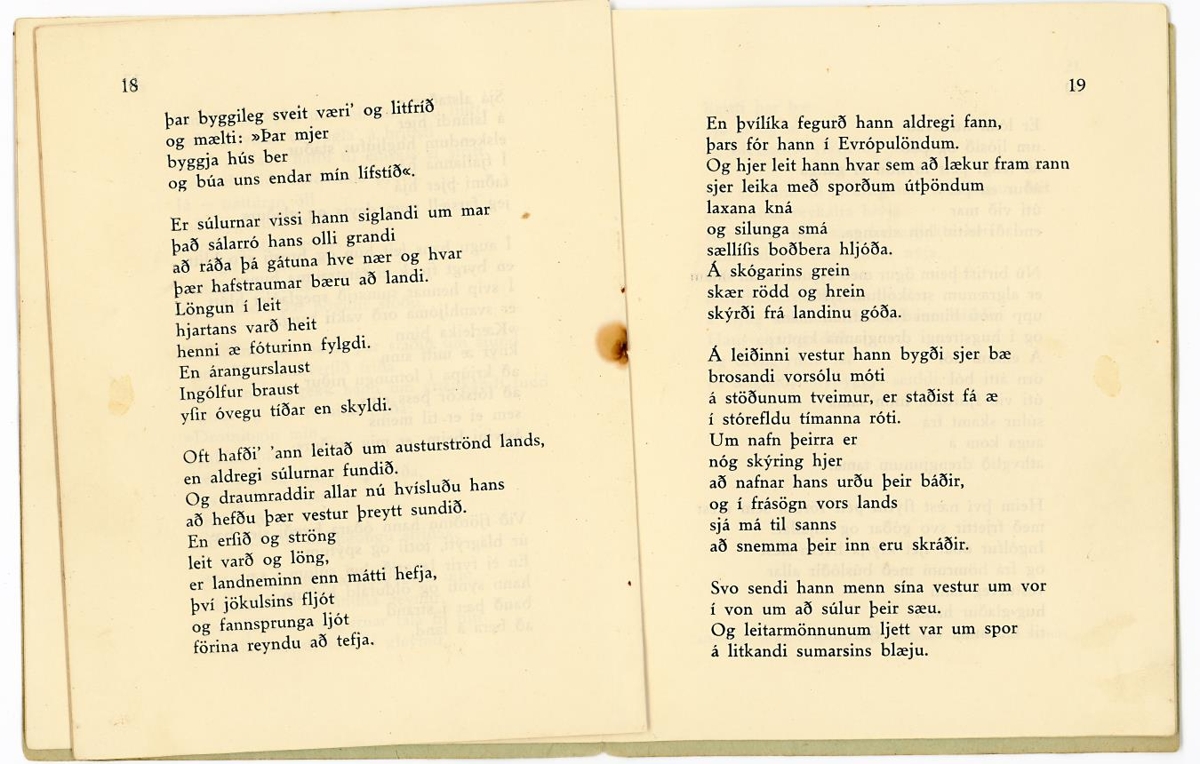 18
þar byggileg sveit væri' og litfríð
og mælti: »Þar mjer
byggja hús ber
og búa uns endar mín lífstíð«.
Er súlurnar vissi hann siglandi um mar
það sálarró hans olli grandi
að ráða þá gátuna hve nær og hvar
þær hafstraumar bæru að landi.
Löngun í leit
hjartans varð heit
henni æ fóturinn fylgdi.
En árangurslaust
Ingólfur braust
yfir óvegu tíðar en skyldi.
Oft hafði' 'ann leitað um austurströnd lands,
en aldregi súlurnar fundið.
Og draumraddir allar nú hvísluðu hans
að hefðu þær vestur þreytt sundið.
En erfið og ströng
leit varð og löng,
er landneminn enn mátti hefja,
því jökulsins fljót
og fannsprunga ljót
förina reyndu að tefja.
19
En þvílíka fegurð hann aldregi fann,
þars fór hann í Evrópulöndum.
Og hjer leit hann hvar sem að lækur fram rann
sjer leika með sporðum útþöndum
laxana kná
og silunga smá
sællífis boðbera hljóða.
Á skógarins grein
skær rödd og hrein
skýrði frá landinu góða.
Á leiðinni vestur hann bygði sjer bæ
brosandi vorsólu móti
á stöðunum tveimur, er staðist fá æ
í stórefldu tímanna róti.
Um nafn þeirra er
nóg skýring hjer
að nafnar hans urðu þeir báðir,
og í frásögn vors lands
sjá má til sanns
að snemma þeir inn eru skráðir.
Svo sendi hann menn sína vestur um vor
í von um að súlur þeir sæu.
Og leitarmönnunum ljett var um spor
á litkandi sumarsins blæju.